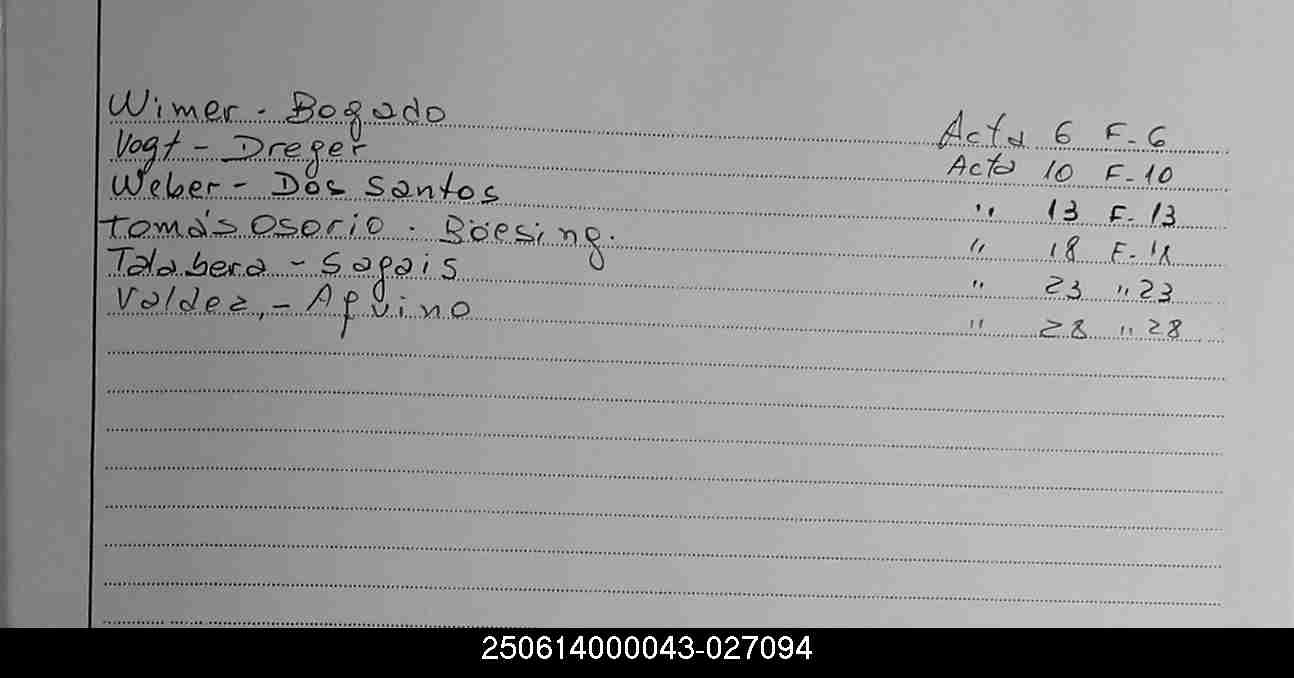 Wimer - Bogado Acta 6 F-6
Vogt - Dreger Acta 10 F-10
Weber - Dos Santos " 13 F-13
Tomás Osorio - Böesing. " 18 F-18
Talabera - Sagais " 23 " 23
Valdez, - Aquino " 28 " 28
250614000043-027094